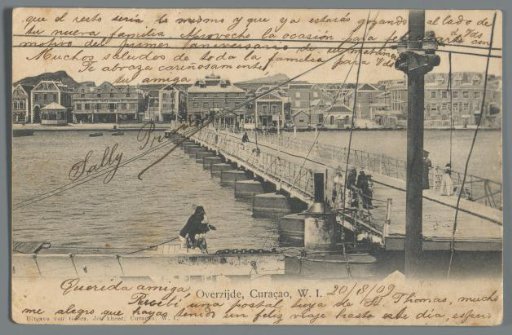 que el resto seria lo mismo y que ya estarás gozando al lado de
tu nueva familia Aprovecho la ocasión para felicitarte con
motivo del primer aniversario de tu
Muchos saludos de toda la familia para Vds
Te abraza cariñosamente
tu amiga
Sally
Overzijde, Curaçao, W. I.
20/8/09
Querida amiga
Recibí una postal tuya de St Thomas, mucho
me alegro que hayas tenido un feliz viaje hasta este dia, espero